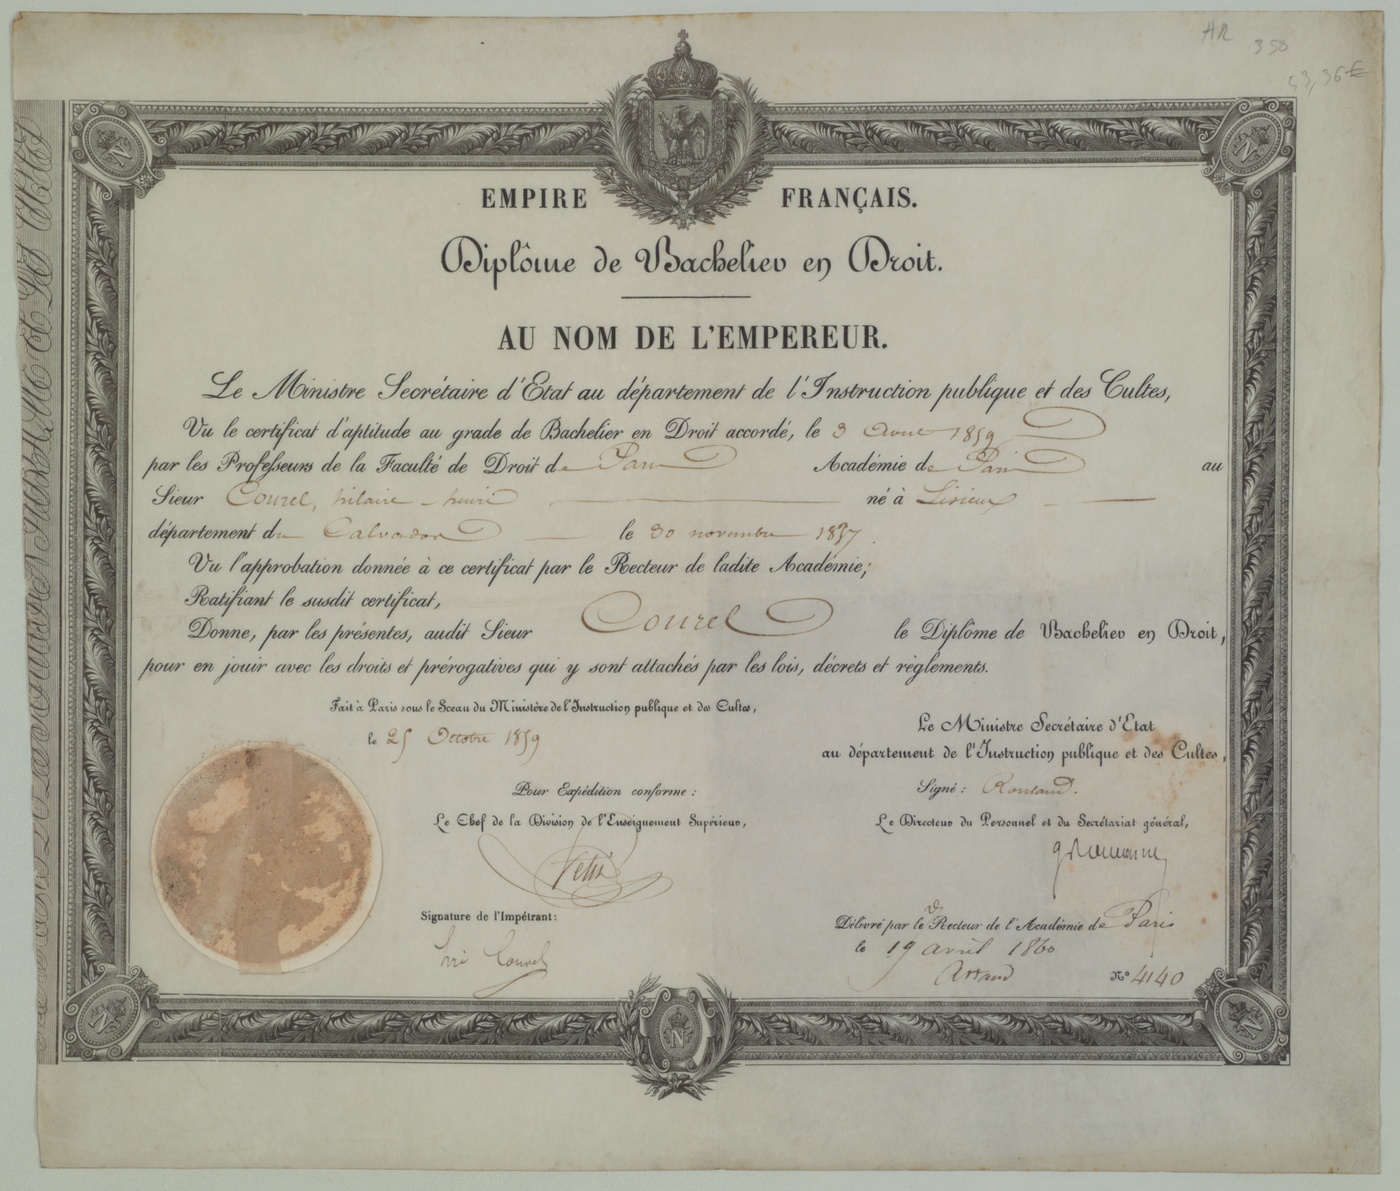 HR 350
53,36 €
EMPIRE FRANÇAIS.
Diplôme de Bachelier en Droit.
AU NOM DE L'EMPEREUR.
Le Ministre Secrétaire d'Etat au département de l'Instruction publique et des Cultes,
Vu le certificat d'aptitude au grade de Bachelier en Droit accordé, le 3 Aout 1859
par les Professeurs de la Faculté de Droit de Paris Académie de Paris au
Sieur Courel, hilaire - henri né à Lisieux
département du Calvados le 30 novembre 1837.
Vu l'approbation donnée à ce certificat par le Recteur de ladite Académie;
Ratifiant le susdit certificat,
Donne, par les présentes, audit Sieur Courel le Diplôme de Bachelier en Droit,
pour en jouir avec les droits et prérogatives qui y sont attachés par les lois, décrets et règlements.
Fait à Paris sous le Sceau du Ministère de l'Instruction publique et des Cultes,
le 25 Octobre 1859
Le Ministre Secrétaire d'Etat
au département de l'Instruction publique et des Cultes,
Signé : Rouland.
Pour Expédition conforme :
Le Chef de la Division de l'Enseignement Supérieur,
Petit
Le Directeur du Personnel et du Secrétariat général,
Signature de l'Impétrant:
Courel
Délivré par le Recteur de l'Académie de Paris
le 19 avril 1860
Artaud
N° 4140
N
N
N
N
N